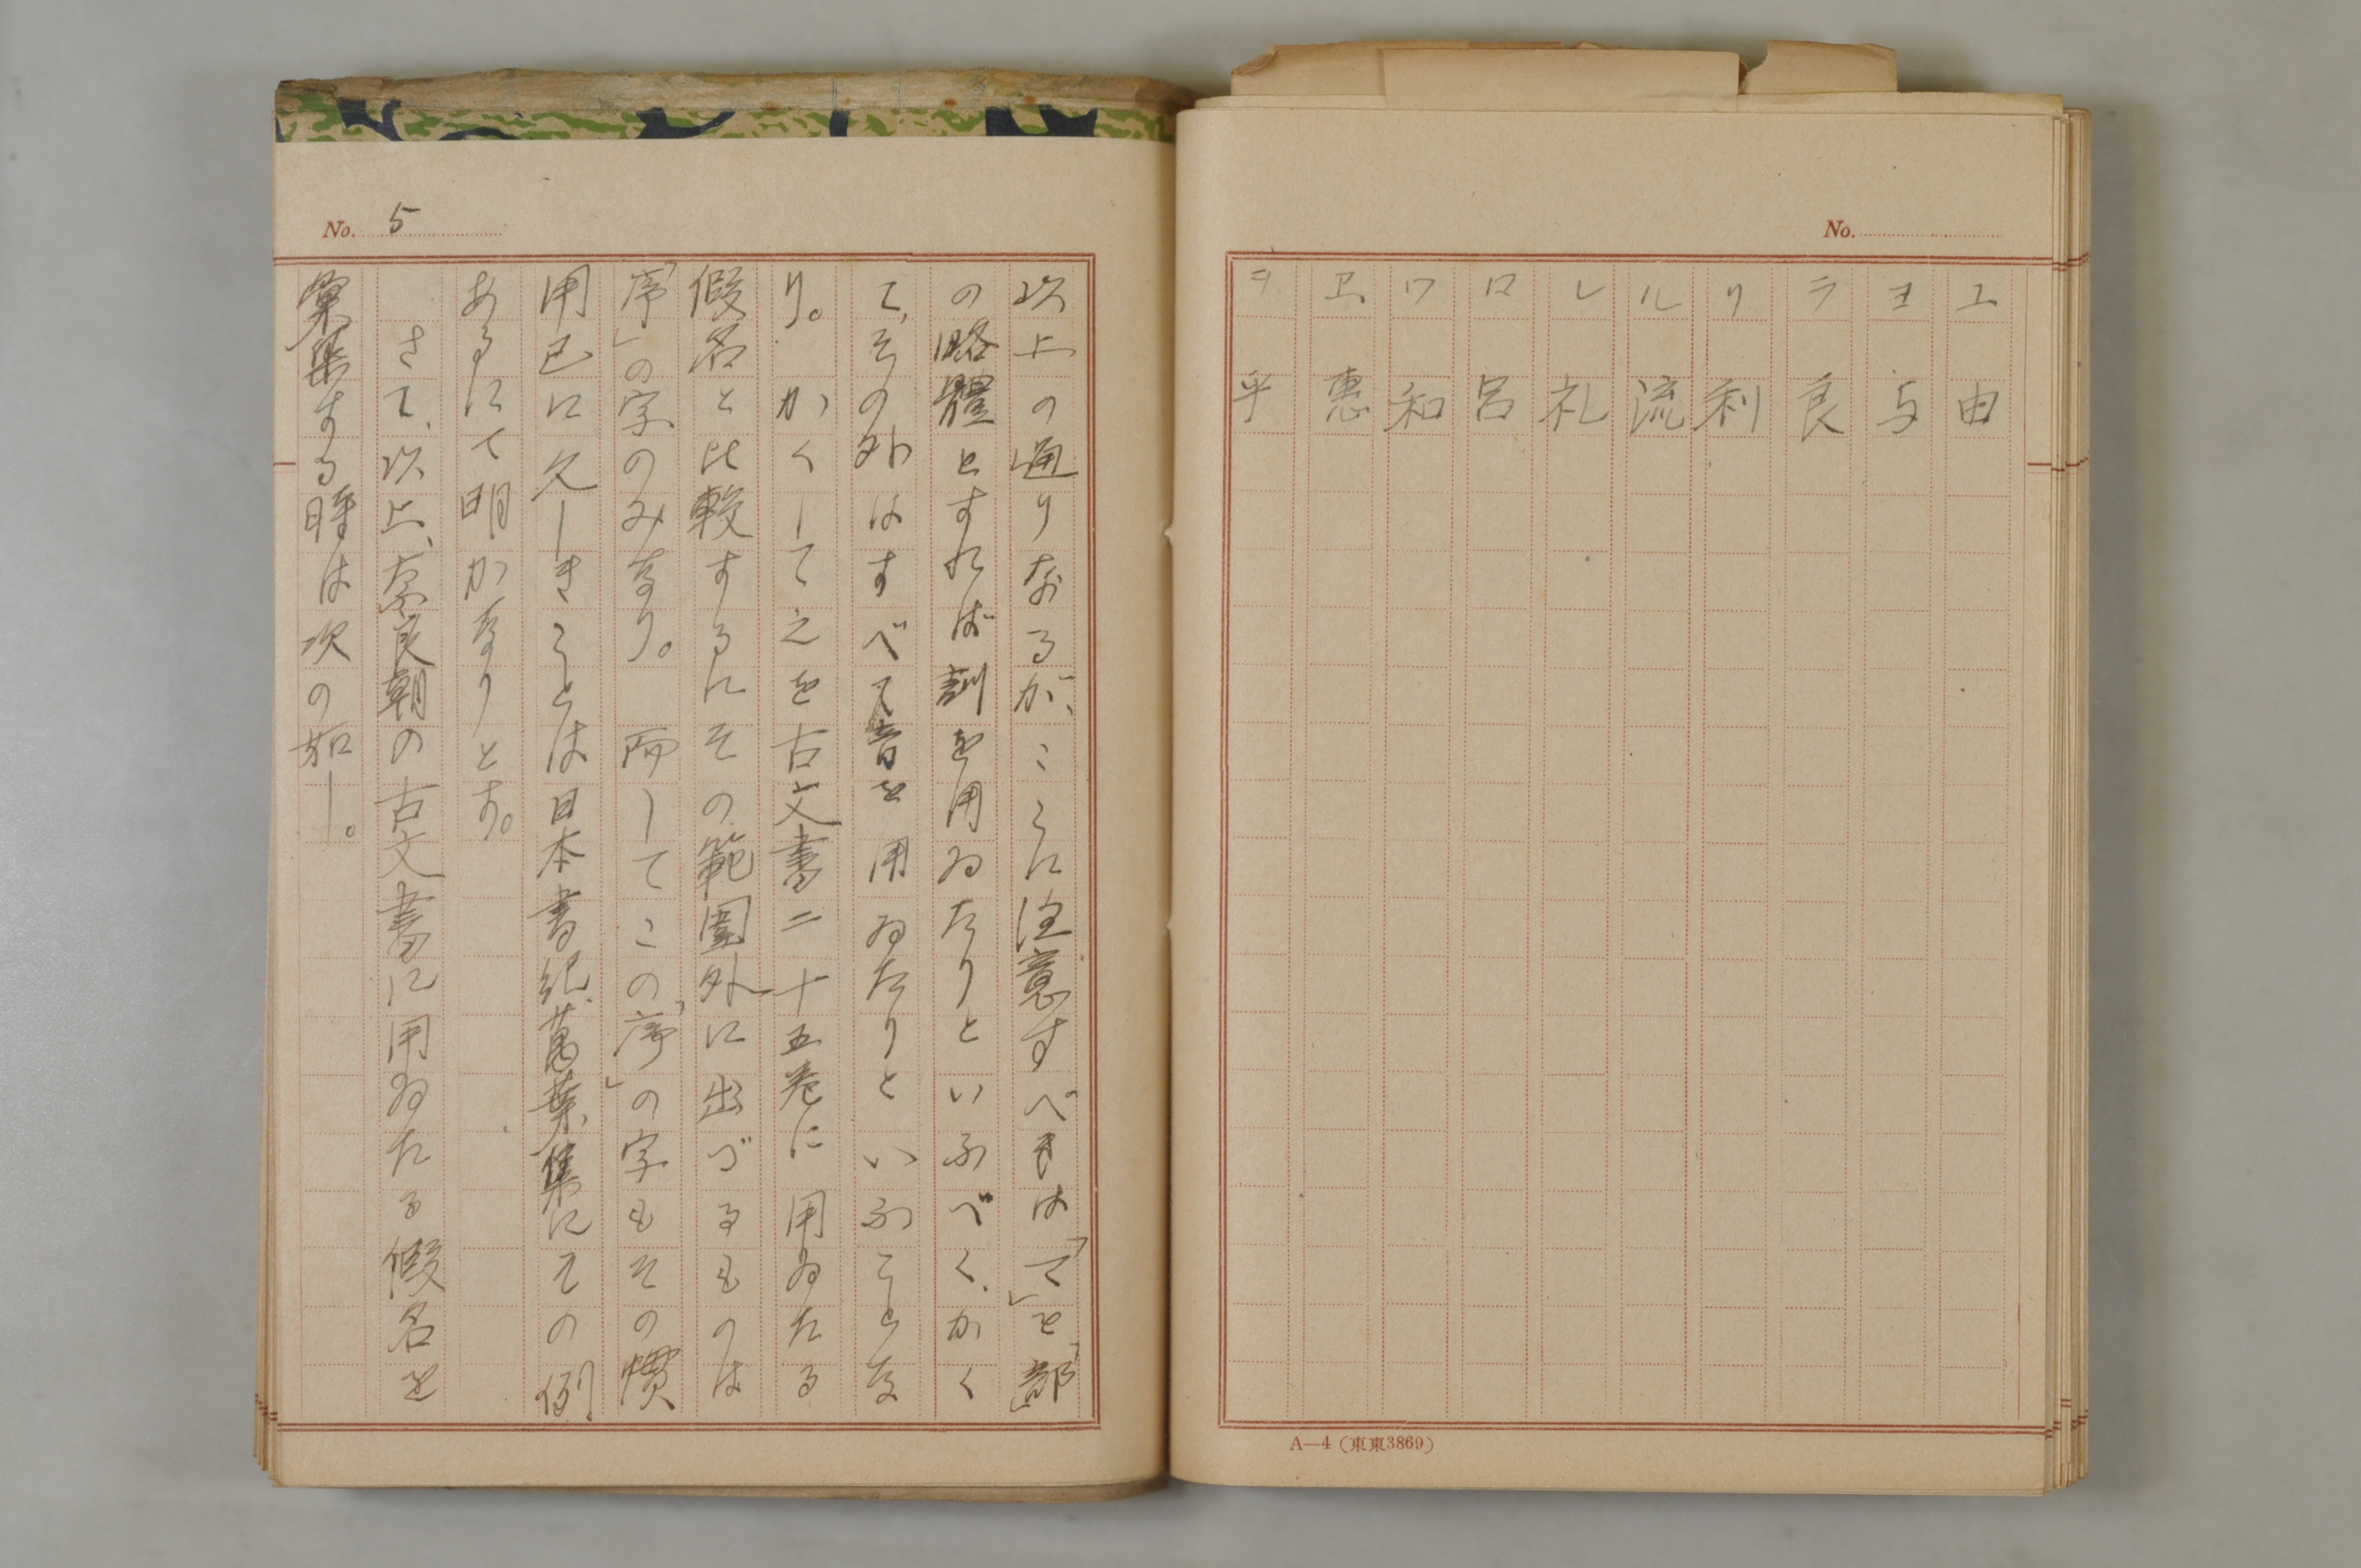 No.
ユ 由
ヨ 与
ラ 良
リ 利
ル 流
レ 礼
ロ 呂
ワ 和
ヱ 惠
ヲ 乎
A—4 (東東3869)
No. 5
以上の通りなるが、こゝに注意すべきは「マ」を「部」
の略體とすれば訓を用ゐたりといふべく、かく
て、その外はすべて音を用ゐたりといふことな
り。かくして之を古文書二十五卷に用ゐたる
假名と比較するにその範圍外に出づるものは
「序」の字のみなり。而してこの「序」の字もその慣
用已に久しきことは日本書紀、萬葉集にその例
あるにて明かなりとす。
さて、以上、奈良朝の古文書に用ゐたる假名を
彙集する時は次の如し。